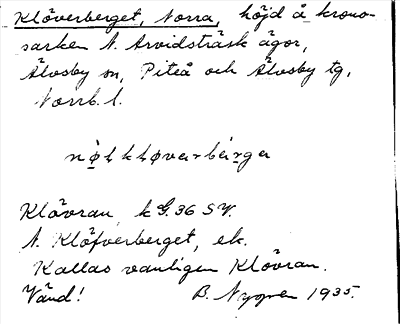 Klöverberget, Norra, höjd å krono-
parken N. Arvidsträsk ägor,
Älvsby sn, Piteå och Älvsby tg,
Norrb. l.
Klövran k G. 36 SV.
N. Klöfverberget, ek.
Kallas vanligen Klövran.
Vänd! B. Nygren 1935.